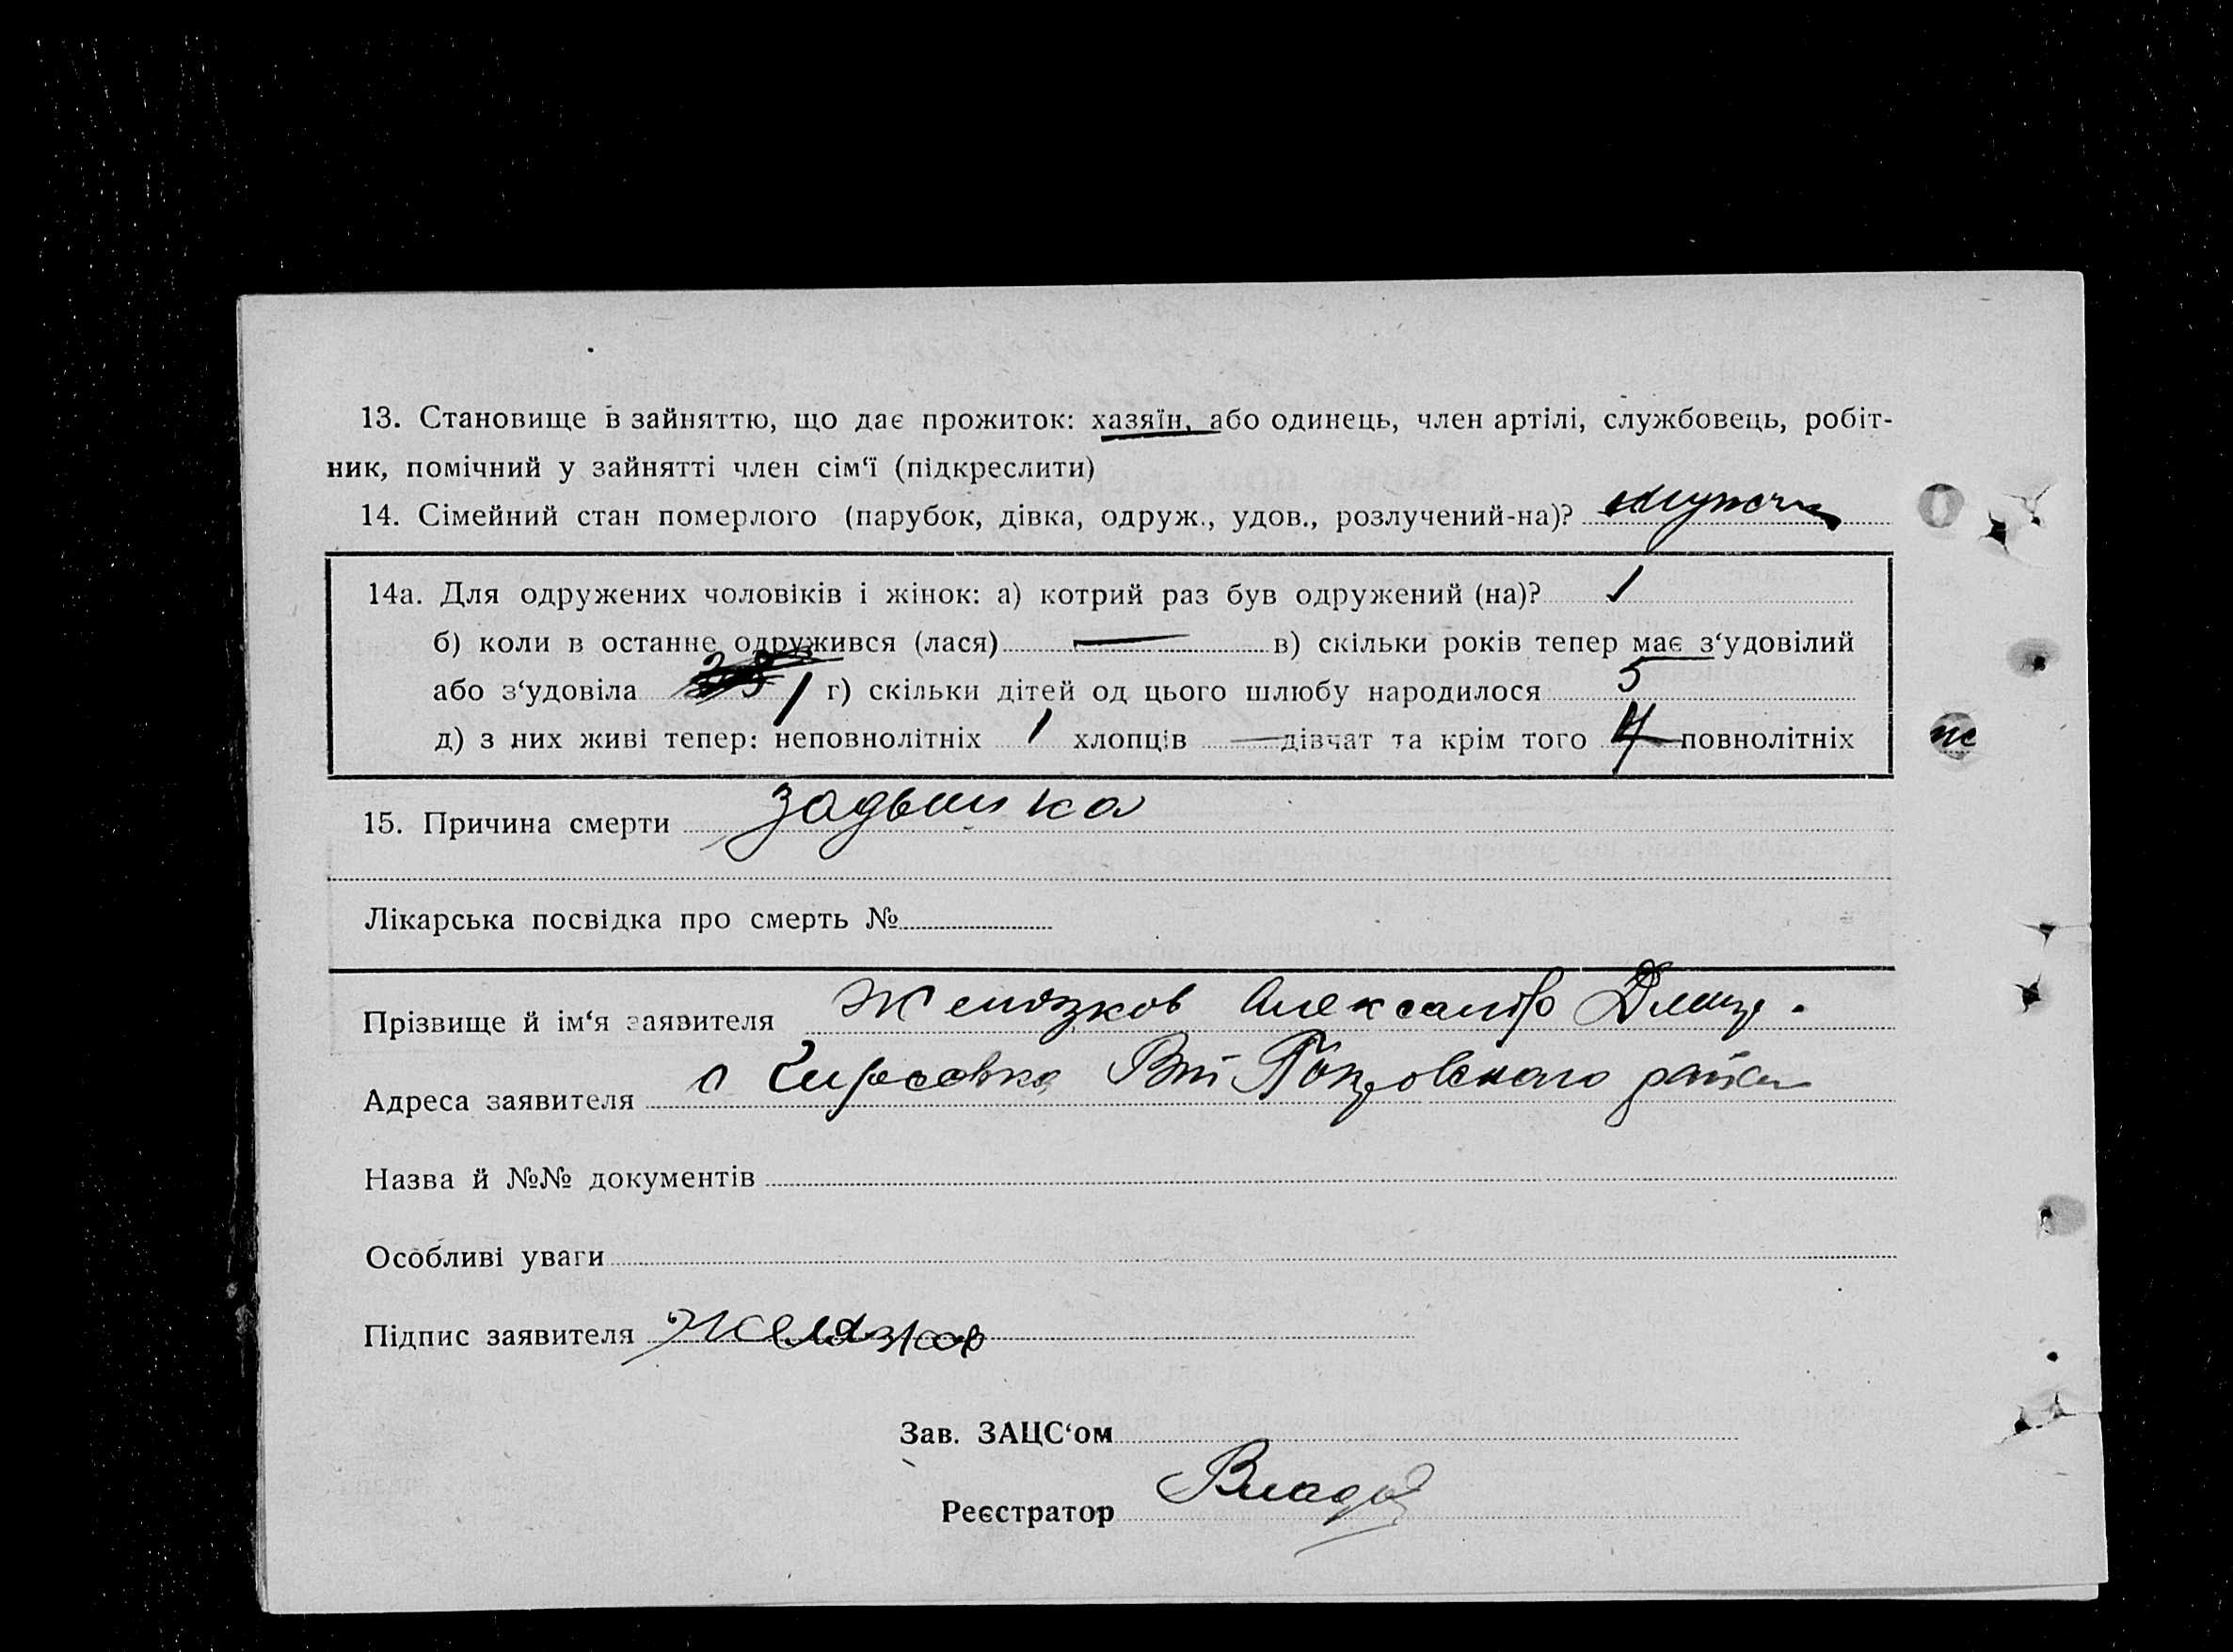 13. Становище в зайняттю, що дає прожиток: хазяїн, або одинець, член артілі, службовець, робіт-
ник, помічний у зайнятті член сім‘ї (підкреслити)
14. Сімейний стан померлого (парубок, дівка, одруж., удов., розлучений-на)?
14а. Для одружених чоловіків і жінок: а) котрий раз був одружений (на)? 1
б) коли в останне одружився (лася) — в) скільки років тепер має з‘удовілий
або з‘удовіла г) скільки дітей од цього шлюбу народилося 5
д) з них живі тепер: неповнолітніх 1 хлопців — дівчат та крім того 4 повнолітніх
15. Причина смерти задышка
Лікарська посвідка про смерть №
Прізвище й ім‘я заявителя Желязков Александр
Адреса заявителя с района
Назва й №№ документів
Особливі уваги
Підпис заявителя Желязков
Зав. ЗАЦС‘ом
Реєстратор